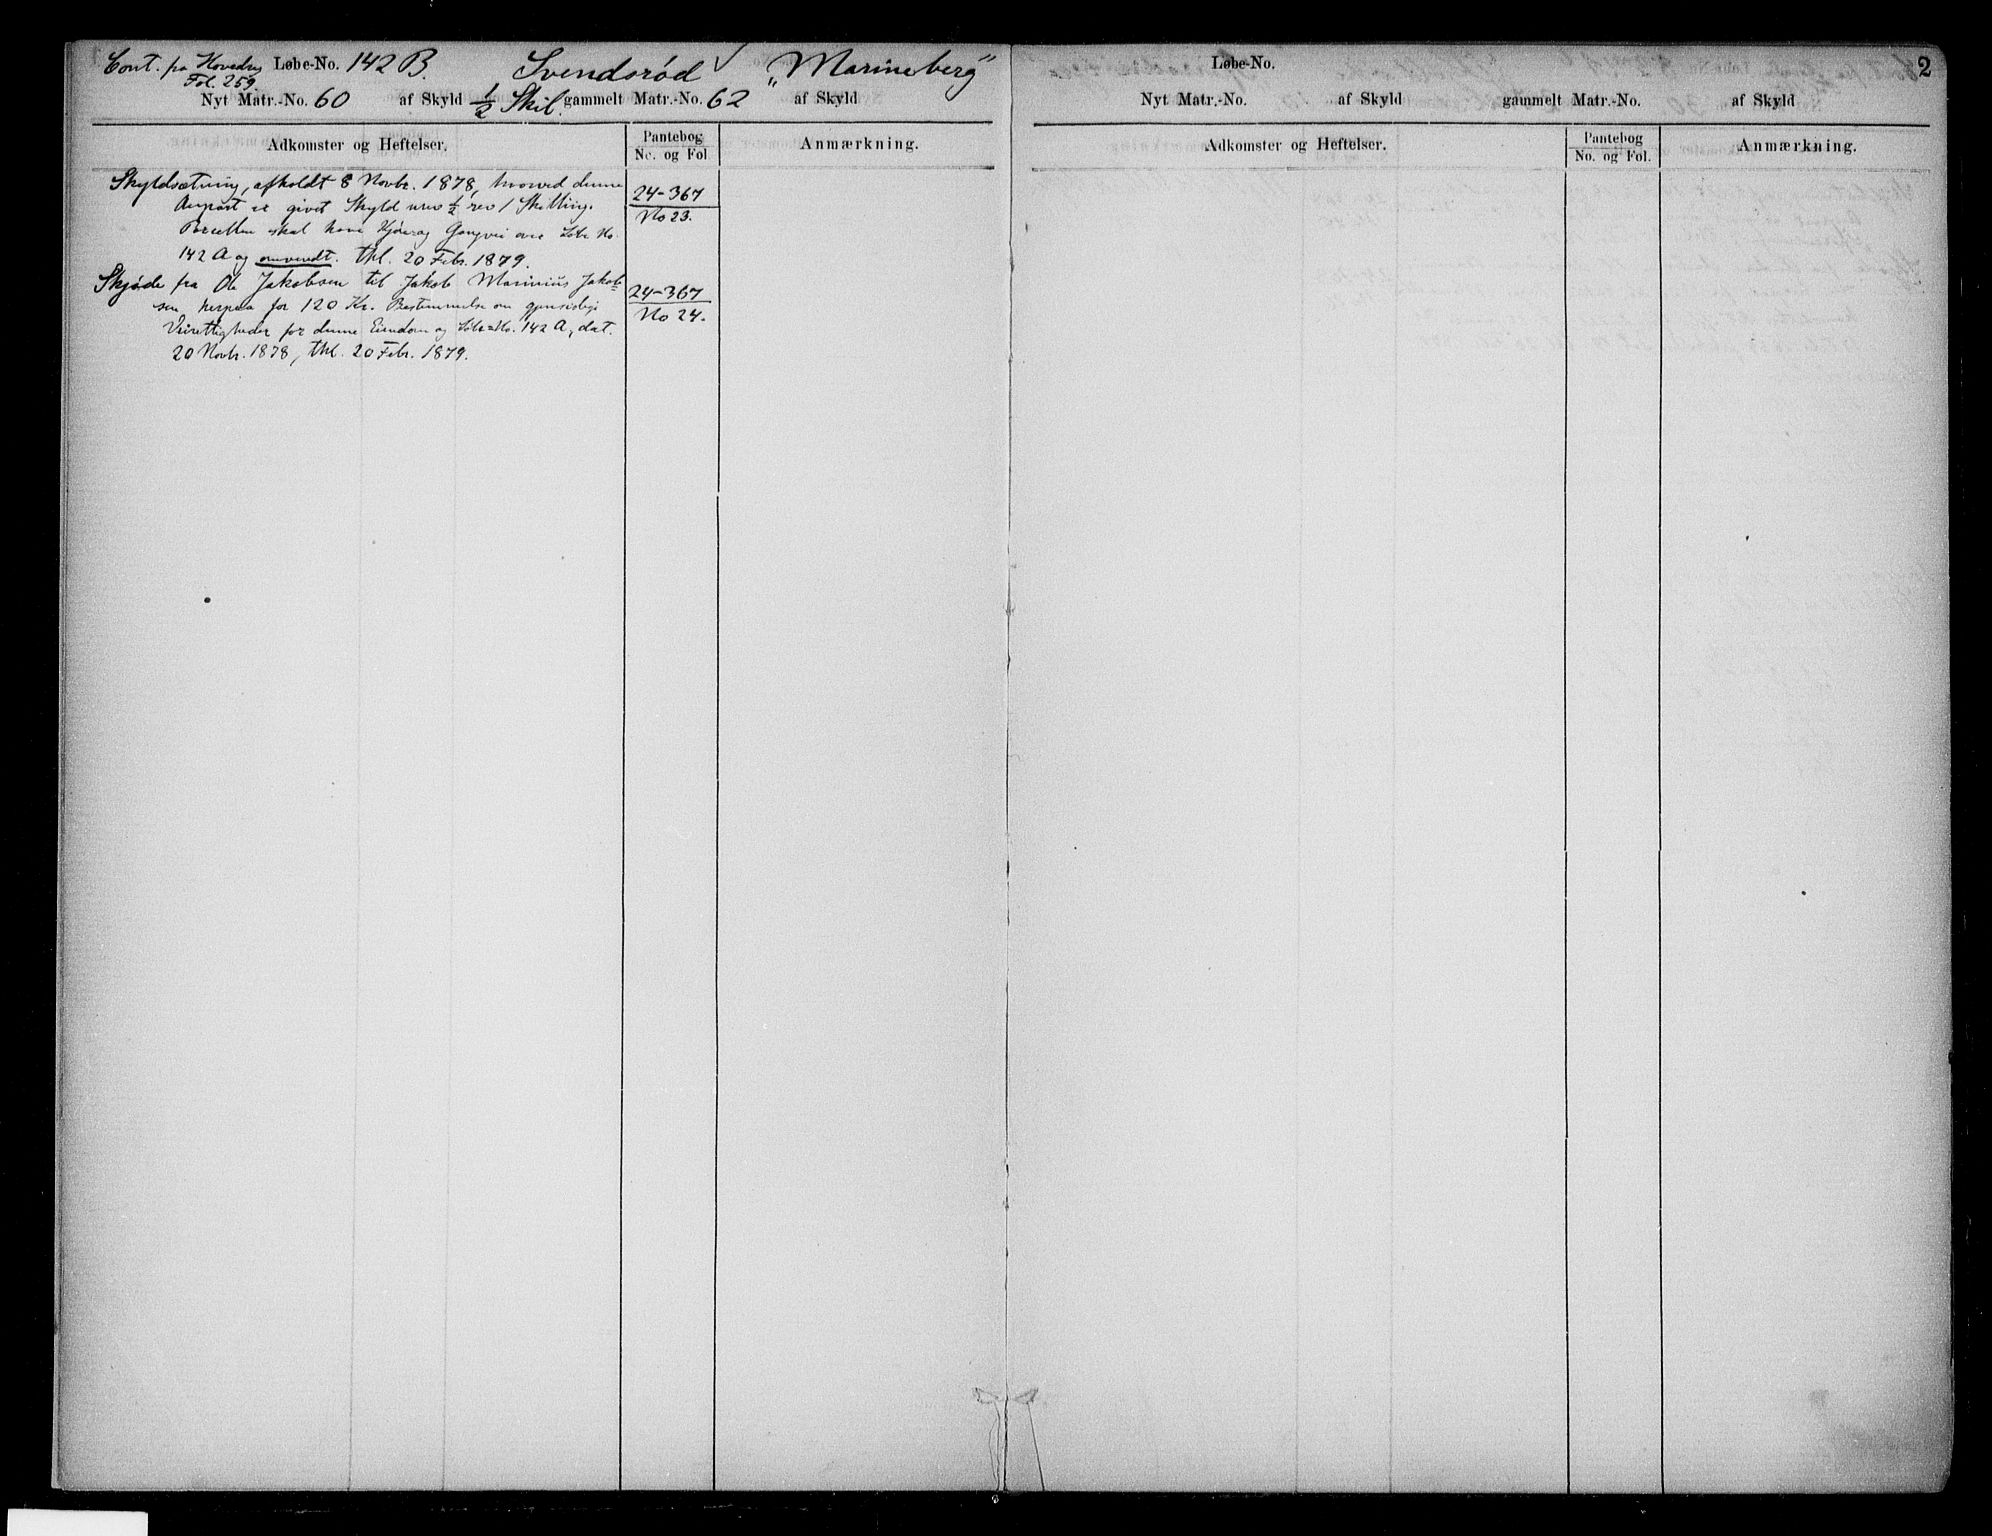 Cont. fra Hovedreg Løbe-No. 142 B. Svendsrød „Marineberg"
Fol. 259
Nyt Matr.-No. 60 af Skyld ½ Skil. gammelt Matr.-No. 62 af Skyld
Adkomster og Heftelser. Pantebog No. og Fol Anmærkning.
Skyldsætning, afholdt 8 Novbr. 1878, hvorved denne 24-367
Anpart er givet Skyld urev ½ rev 1 Skilling. No 23.
Parcellen skal have Kjøre og Gangvei over Løbe No.
142 A og omvendt. thl. 20 Febr. 1879.
Skjøde fra Ole Jakobsen til Jakob Marinius Jakob= 24-367
sen herpaa for 120 Kr. Bestemmelse om gjensidige No 24.
Veirettigheder for denne Eiendom og Løbe=No. 142 A, dat.
20 Novbr. 1878, thl. 20 Febr. 1879.
Løbe-No. 2
Nyt Matr.-No. af Skyld gammelt Matr.-No. af Skyld
Adkomster og Heftelser. Pantebog No. og Fol. Anmærkning.